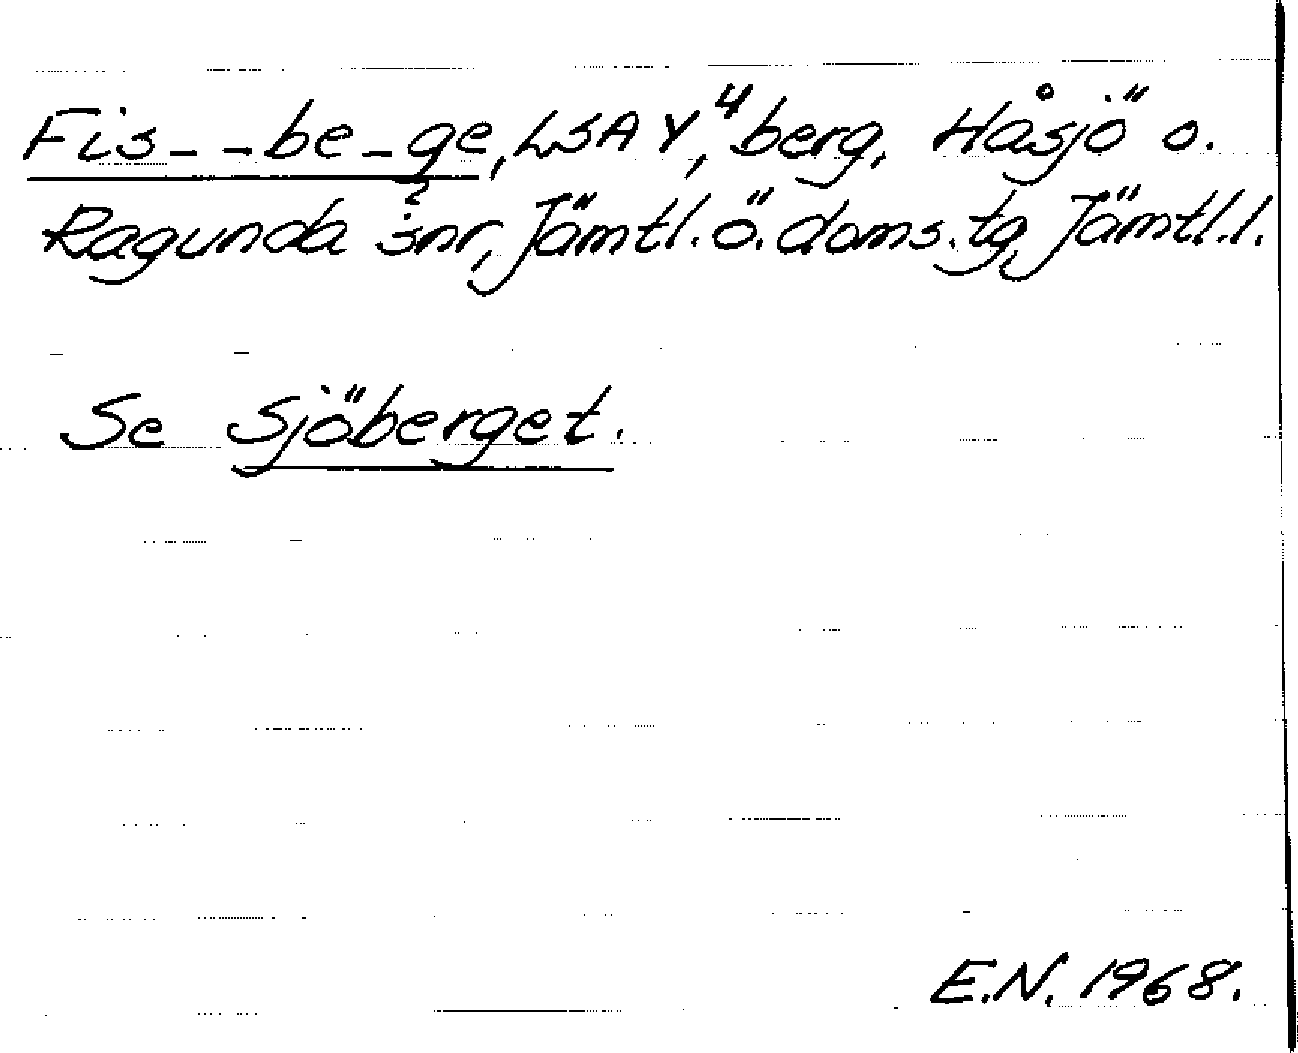 Fis_ _be_ge, LSA Y,⁴ berg, Håsjö o.
Ragunda snr, Jämtl. ö. doms. tg, Jämtl. l.
Se Sjöberget.
E.N. 1968.